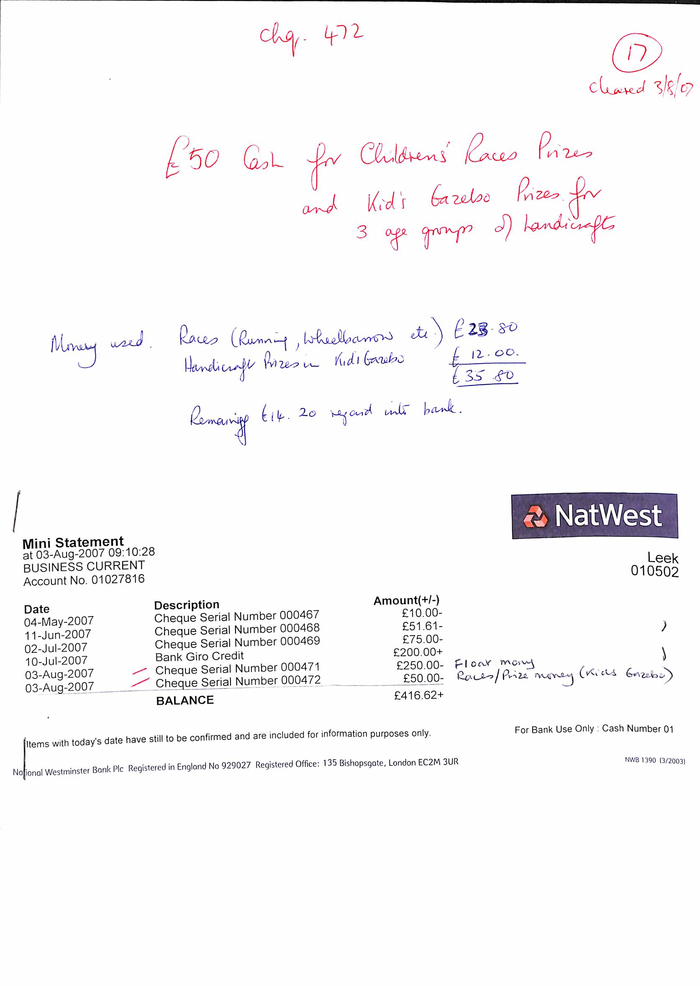 Chq. 472
17
Cleared 3/8/07
£50 Cash for Children's Races Prizes
and Kid's Gazebo Prizes for
3 age groups of handicrafts
Money used. Races (Running, Wheelbarrow etc.) £23.80
Handicraft Prizes in Kid's Gazebo £12.00.
£35 80
Remaining £14.20 into bank.
NatWest
Mini Statement
at 03-Aug-2007 09:10:28
BUSINESS CURRENT
Account No. 01027816
Leek
010502
Date Description Amount(+/-)
04-May-2007 Cheque Serial Number 000467 £10.00-
11-Jun-2007 Cheque Serial Number 000468 £51.61-
02-Jul-2007 Cheque Serial Number 000469 £75.00-
10-Jul-2007 Bank Giro Credit £200.00+
03-Aug-2007 Cheque Serial Number 000471 £250.00- Float money
03-Aug-2007 Cheque Serial Number 000472 £50.00- Races/Prize money (Kids Gazebo)
BALANCE £416.62+
Items with today's date have still to be confirmed and are included for information purposes only.
For Bank Use Only : Cash Number 01
National Westminster Bank Plc Registered in England No 929027 Registered Office: 135 Bishopsgate, London EC2M 3UR
NWB 1390 (3/2003)